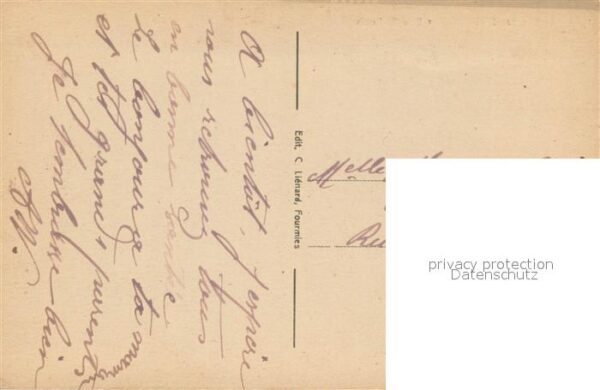 A bientôt, j'espère
vous retrouver tous
en bonne santé
Le bonjour à ta mère
et tes grands parents
Je t'embrasse bien
Edit. C. Liénard, Fourmies
Melle
privacy protection
Datenschutz